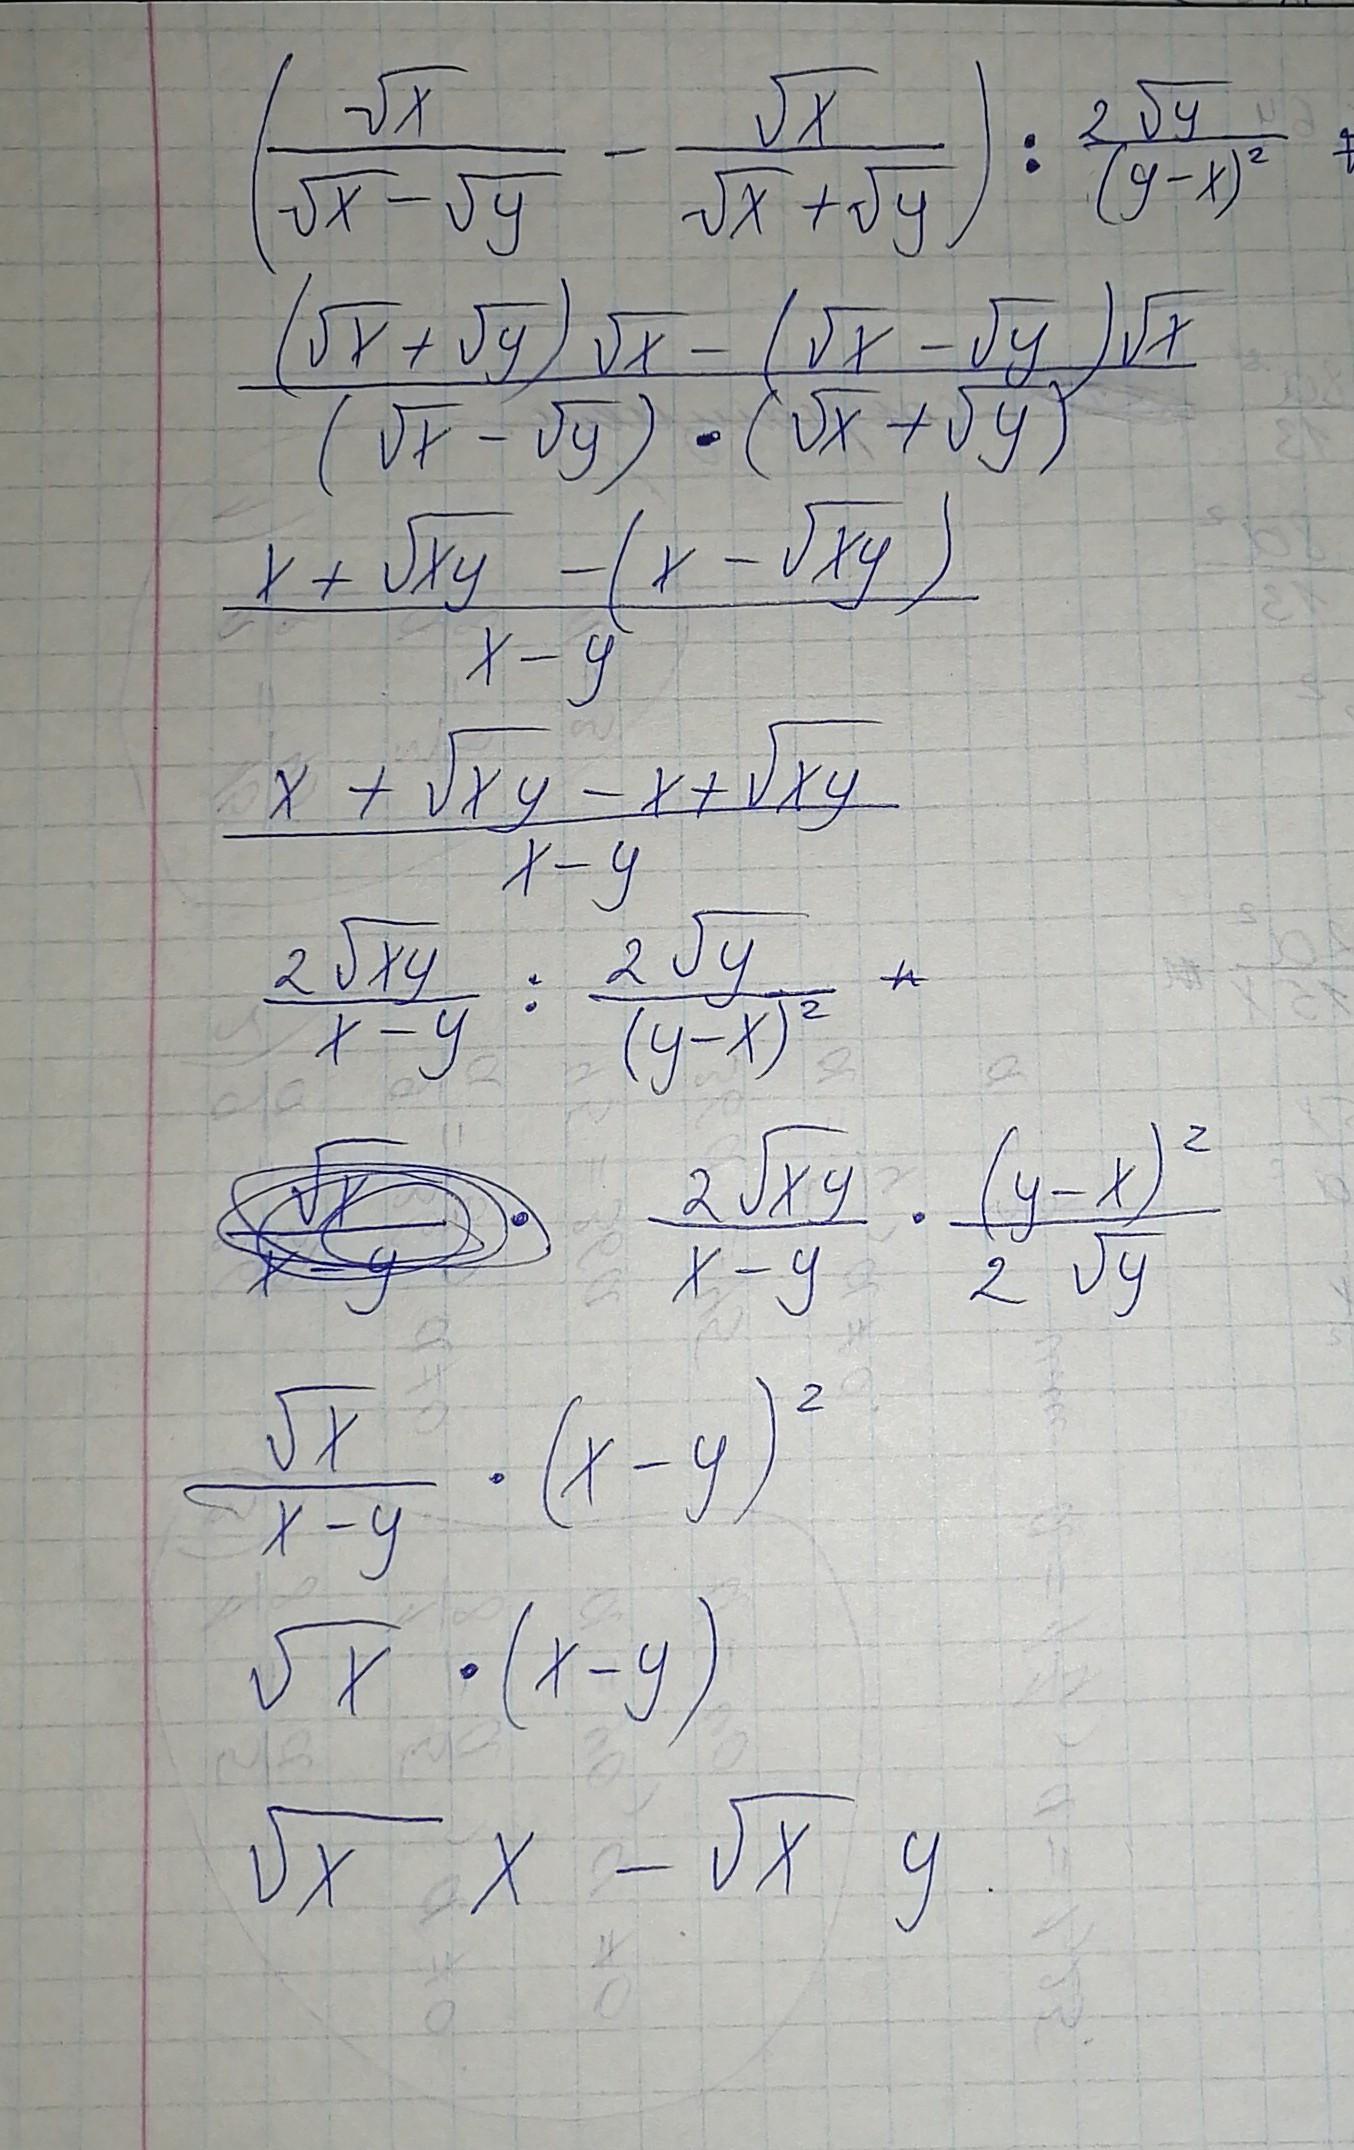 (√x / (√x − √y) − √x / (√x + √y)) : 2√y / (y−x)²
((√x + √y)√x − (√x − √y)√x) / ((√x − √y) · (√x + √y))
(x + √xy − (x − √xy)) / (x − y)
(x + √xy − x + √xy) / (x − y)
2√xy / (x − y) : 2√y / (y−x)²
2√xy / (x − y) · (y−x)² / 2√y
√x / (x − y) · (x − y)²
√x · (x − y)
√x x − √x y